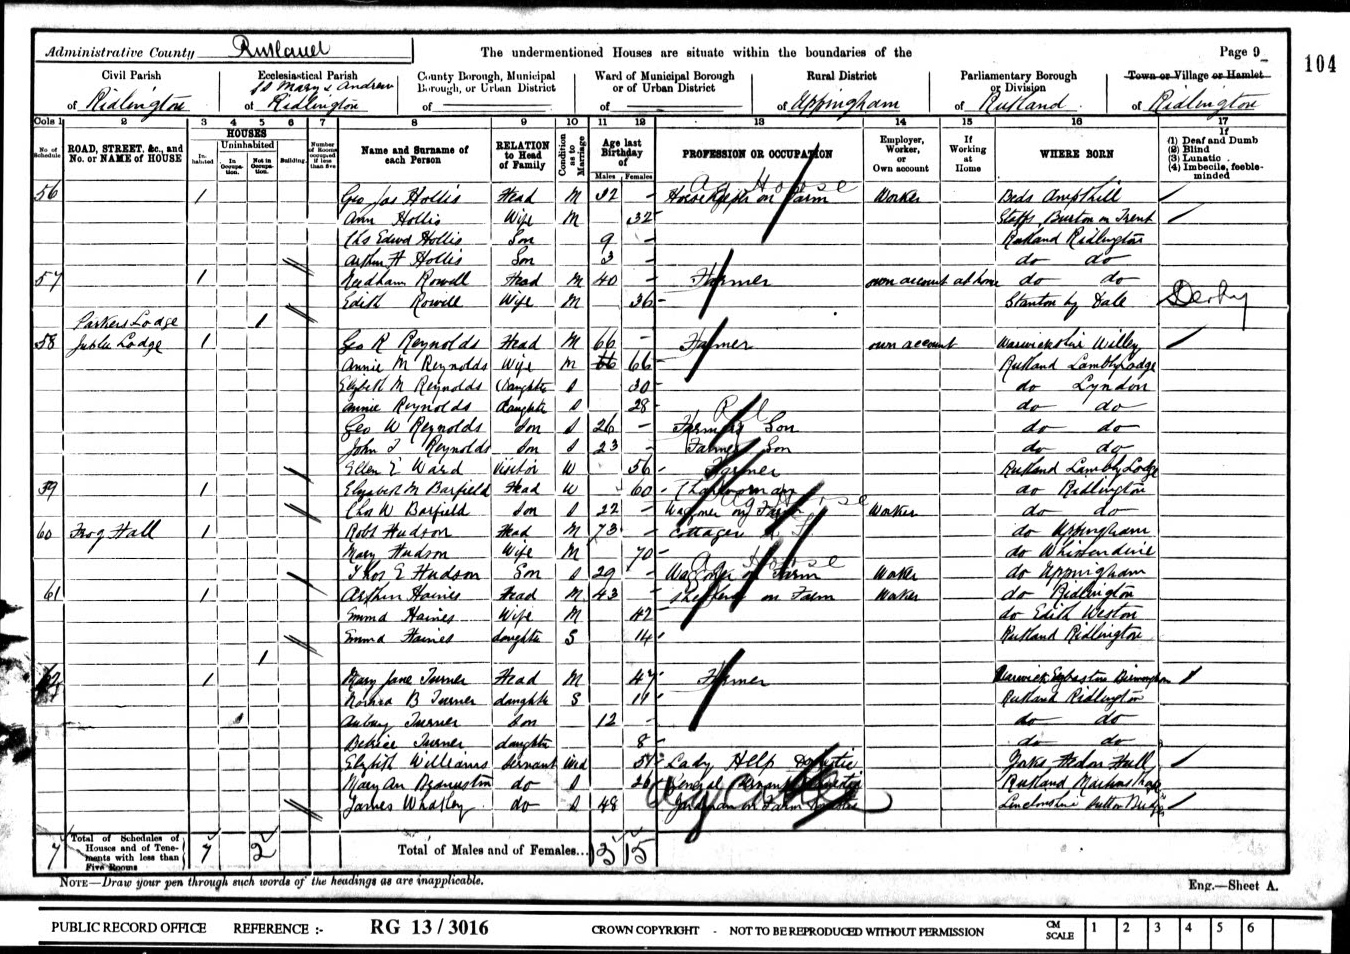 Administrative County Rutland
The undermentioned Houses are situate within the boundaries of the
Page 9
104
Civil Parish of Ridlington
Ecclesiastical Parish of St Mary & Andrew Ridlington
County Borough, Municipal Borough, or Urban District of
Ward of Municipal Borough or of Urban District of
Rural District of Uppingham
Parliamentary Borough or Division of Rutland
Town or Village or Hamlet of Ridlington
Cols 1 2 3 4 5 6 7 8 9 10 11 12 13 14 15 16 17
No. of Schedule
ROAD, STREET, &c., and No. or NAME of HOUSE
HOUSES
Inhabited
Uninhabited
In Occupation.
Not in Occupation.
Building.
Number of Rooms occupied if less than five
Name and Surname of each Person
RELATION to Head of Family
Condition as to Marriage
Age last Birthday of
Males Females
PROFESSION OR OCCUPATION
Employer, Worker, or Own account
If Working at Home
WHERE BORN
If (1) Deaf and Dumb (2) Blind (3) Lunatic (4) Imbecile, feeble-minded
56 1 Geo Jas Hollis Head M 32 - Horsekeeper on Farm Worker Beds Ampthill
Ann Hollis Wife M 32 Staffs Burton on Trent
Chs Edwd Hollis Son 9 - Rutland Ridlington
Arthur H Hollis Son 3 - do do
57 1 Needham Rowell Head M 40 - Farmer own account at home do do
Edith Rowell Wife M 36 Stanton by Dale Derby
Parkers Lodge 1
58 Jubilee Lodge 1 Geo R Reynolds Head M 66 - Farmer own account Warwickshire Willey
Annie M Reynolds Wife M 66 Rutland Lambley Lodge
Elizbth M Reynolds Daughter S 30 do Lyndon
Annie Reynolds daughter S 28 do do
Geo W Reynolds Son S 26 - Farmers Son do do
John T Reynolds Son S 23 - Farmers Son do do
Ellen E Ward Visitor W 56 Farmer Rutland Lambley Lodge
59 1 Elizabeth M Barfield Head W 60 Charwoman do Ridlington
Chs W Barfield Son S 22 - Waggoner on Farm Worker do do
60 Frog Hall 1 Robt Hudson Head M 73 - Cottager do Uppingham
Mary Hudson Wife M 70 do Whissendine
Thos E Hudson Son S 29 - Waggoner on Farm Worker do Uppingham
61 1 Arthur Haines Head M 43 - Shepherd on Farm Worker do Ridlington
Emma Haines Wife M 42 do Edith Weston
Emma Haines daughter S 14 Rutland Ridlington
1
62 1 Mary Jane Turner Head M 47 Farmer Warwick Edgbaston Birmingham
B Turner daughter S 11 Rutland Ridlington
Turner Son 12 - do do
Turner daughter 8 do do
Elizbth Williams Servant Wid Lady Help Domestic Yorks Hedon Hull
Mary An do S 26 General Servant Domestic Rutland
James Whatley do S 48 on Farm Lincolnshire Sutton Bridge
7 Total of Schedules of Houses and of Tenements with less than Five Rooms 7 2 Total of Males and of Females... 13 15
NOTE—Draw your pen through such words of the headings as are inapplicable.
Eng.—Sheet A.
PUBLIC RECORD OFFICE REFERENCE :- RG 13 / 3016 CROWN COPYRIGHT - NOT TO BE REPRODUCED WITHOUT PERMISSION CM SCALE 1 2 3 4 5 6